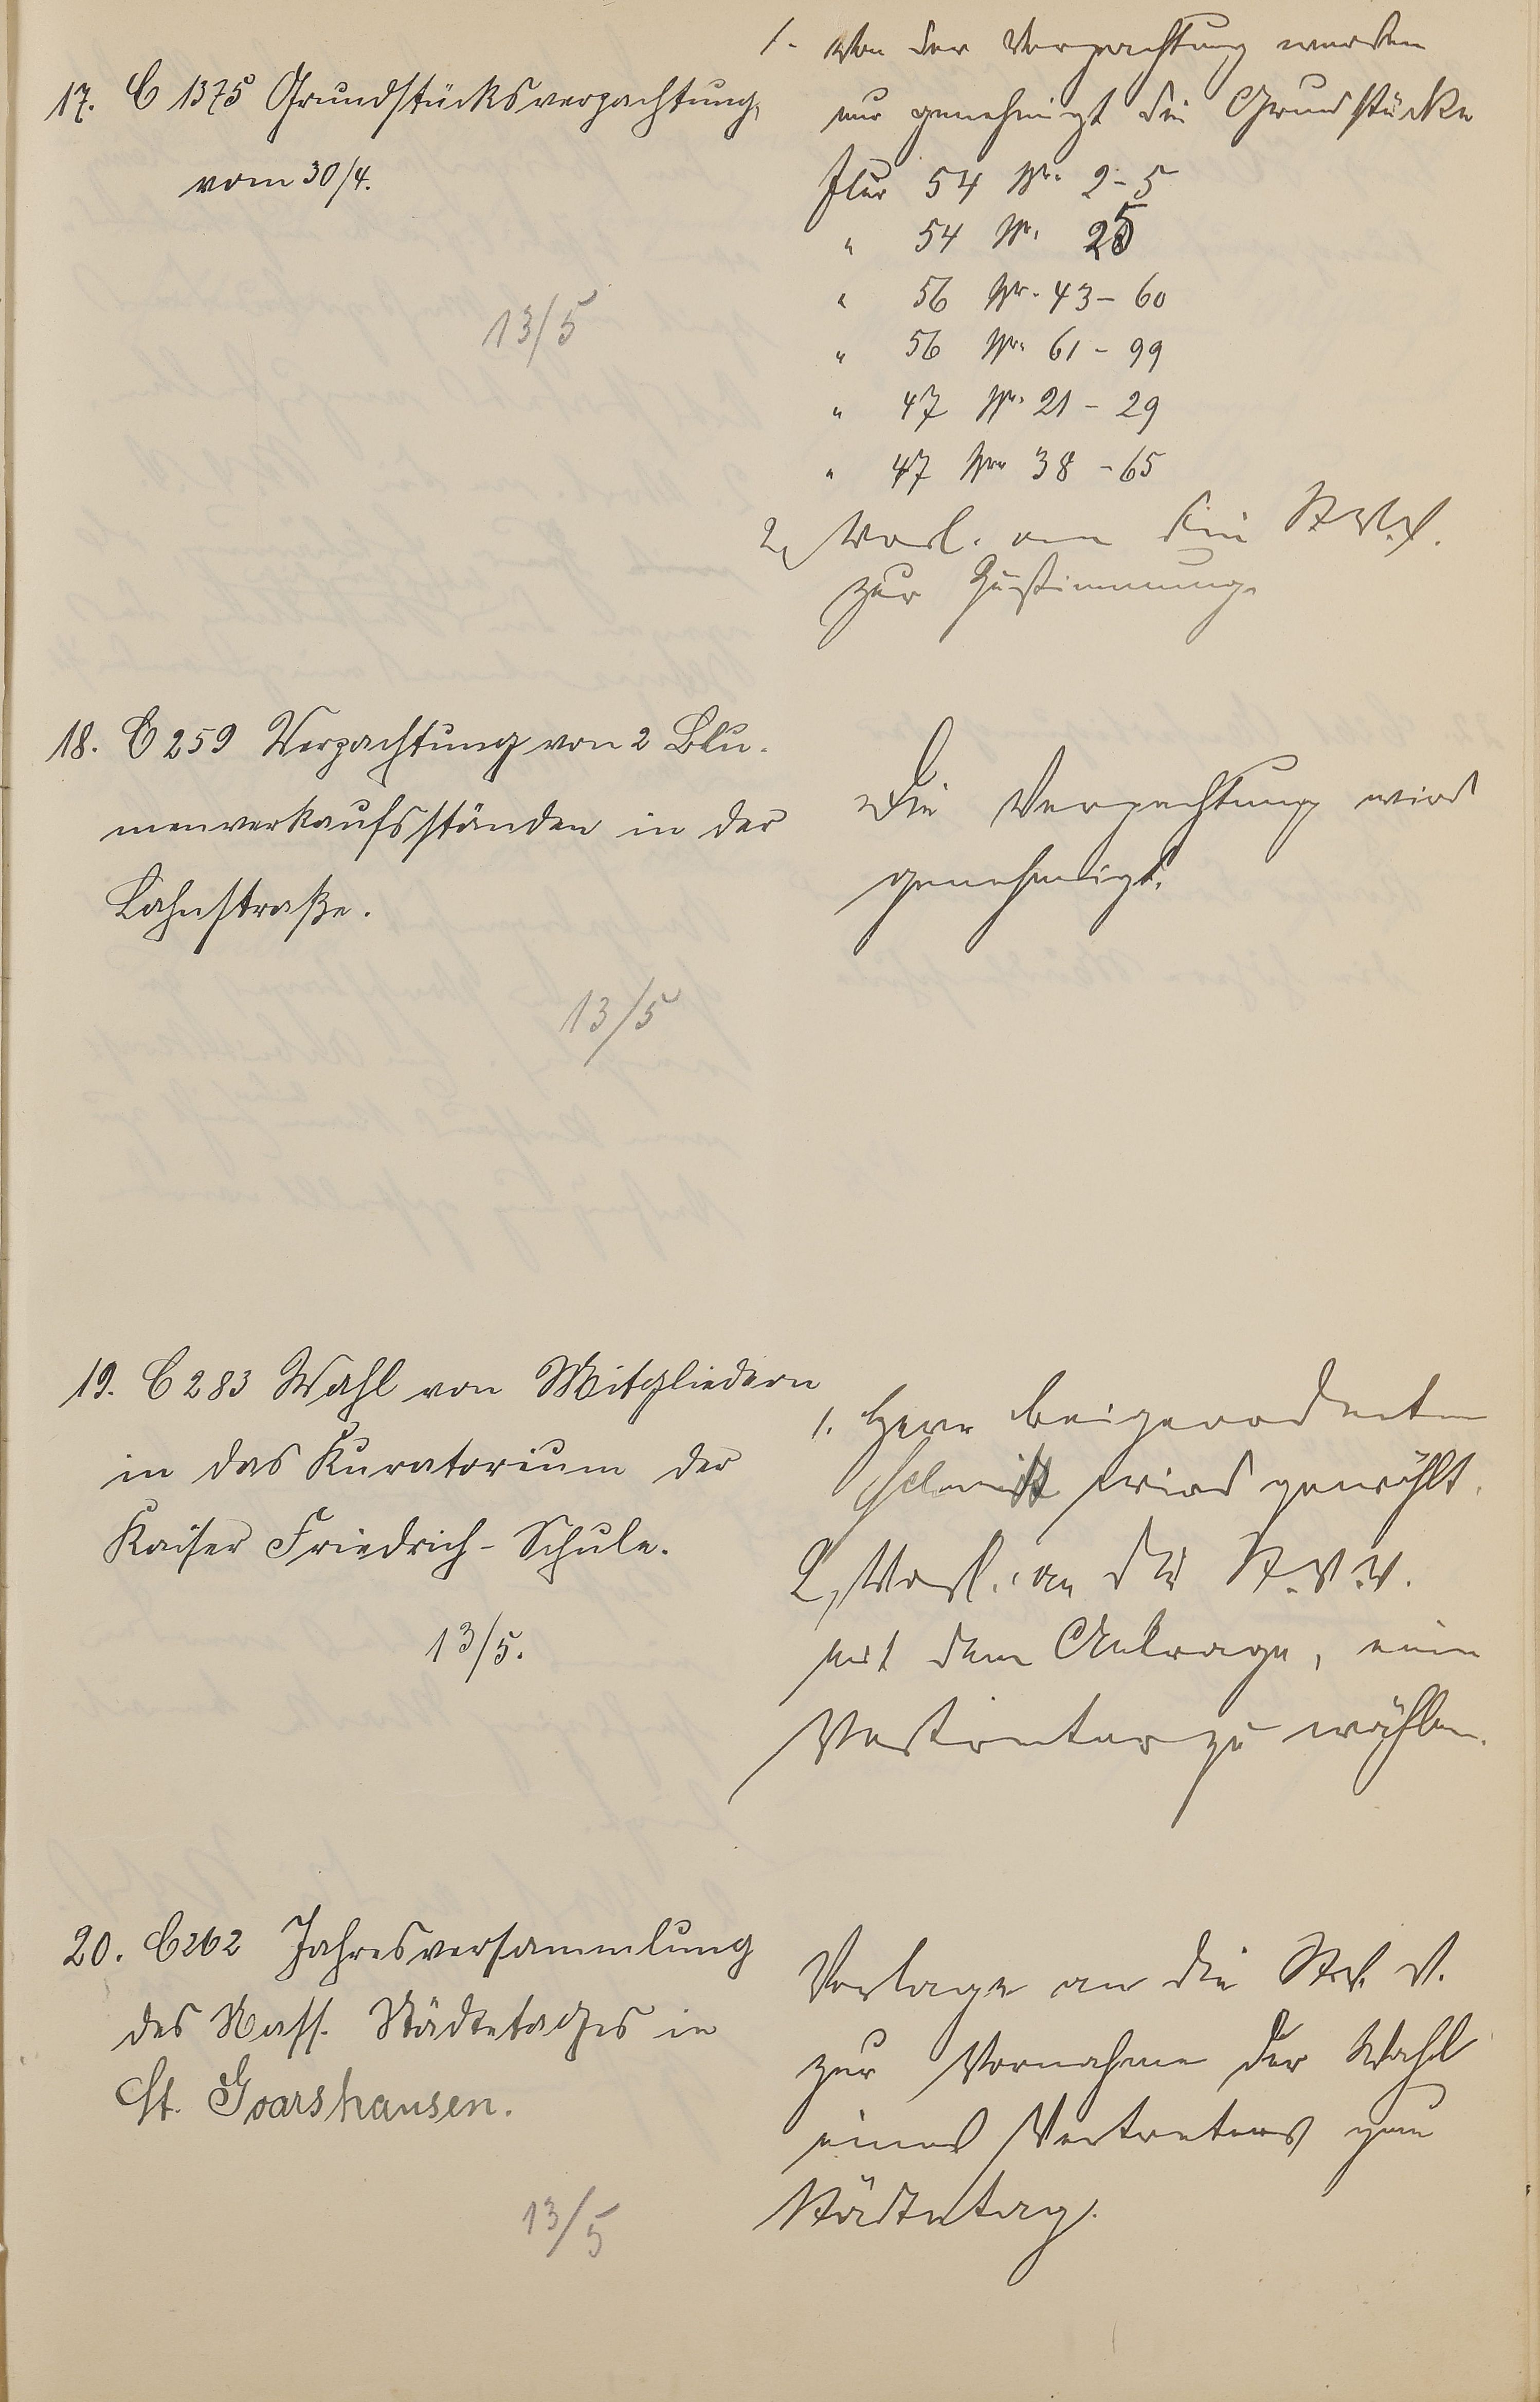 17. C 1375 Grundstücksverpachtung,
vom 30/4.
13/5
1. Von der Verpachtung werden
nur genehmigt die Grundstücke
Flur 54 Nr. 2-5
" 54 Nr. 25
" 56 Nr. 43-60
" 56 Nr. 61-99
" 47 Nr. 21-29
" 47 Nr. 38-65
2, Vorl. an die St. V. V.
zur Zustimmung.
18. C 259 Verpachtung von 2 Blu-
menverkaufsständen in der
Lahnstraße.
13/5
Die Verpachtung wird
genehmigt.
19. C 283 Wahl von Mitgliedern
in das Kuratorium der
Kaiser Friedrich-Schule.
13/5.
1. Herr Beigeordneter
Schmidt wird gewählt.
2, Vorl. an die St. V. V.
mit dem Antrage, einen
Vertreter zu wählen.
20. C 262 Jahresversammlung
des Nass. Städtetages in
St. Goarshausen.
13/5
Vorlage an die St. V. V.
zur Vornahme der Wahl
eines Vertreters zum
Städtetag.